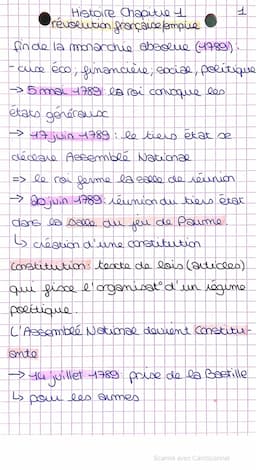 Histoire Chapitre 1
1
révolution française/empire
fin de la monarchie absolue (1789):
- crise éco, financière, sociale, politique
→ 5 mai 1789: le roi convoque les
états généraux
→ 17 juin 1789: le tiers état se
déclare Assemblé National
=> le roi ferme la salle de réunion
→ 20 juin 1789: réunion du tiers état
dans la salle du jeu de Paume.
↳ création d'une constitution
constitution: texte de lois (articles)
qui fixe l'organisat° d'un régime
politique.
L'Assemblé National devient constitu-
ante
→ 14 juillet 1789 prise de la Bastille
↳ pour les armes
Scanné avec CamScanner